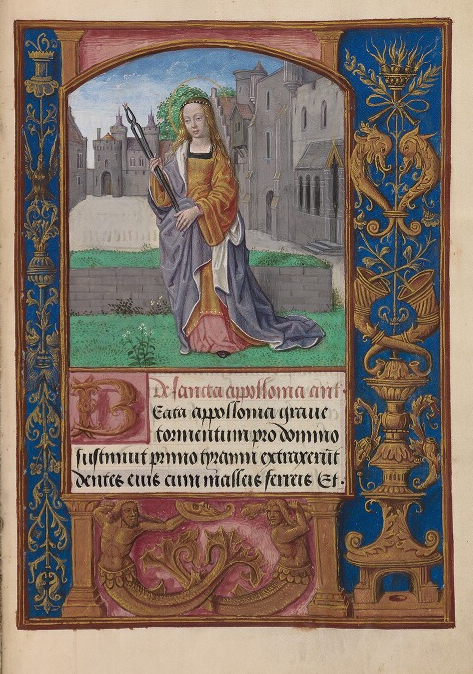 De sancta appollonia ant.
Beata appollonia graue
tormentum pro domino
sustinuit primo tyranni extraxerūt
dentes eius cum malleis ferreis Et.